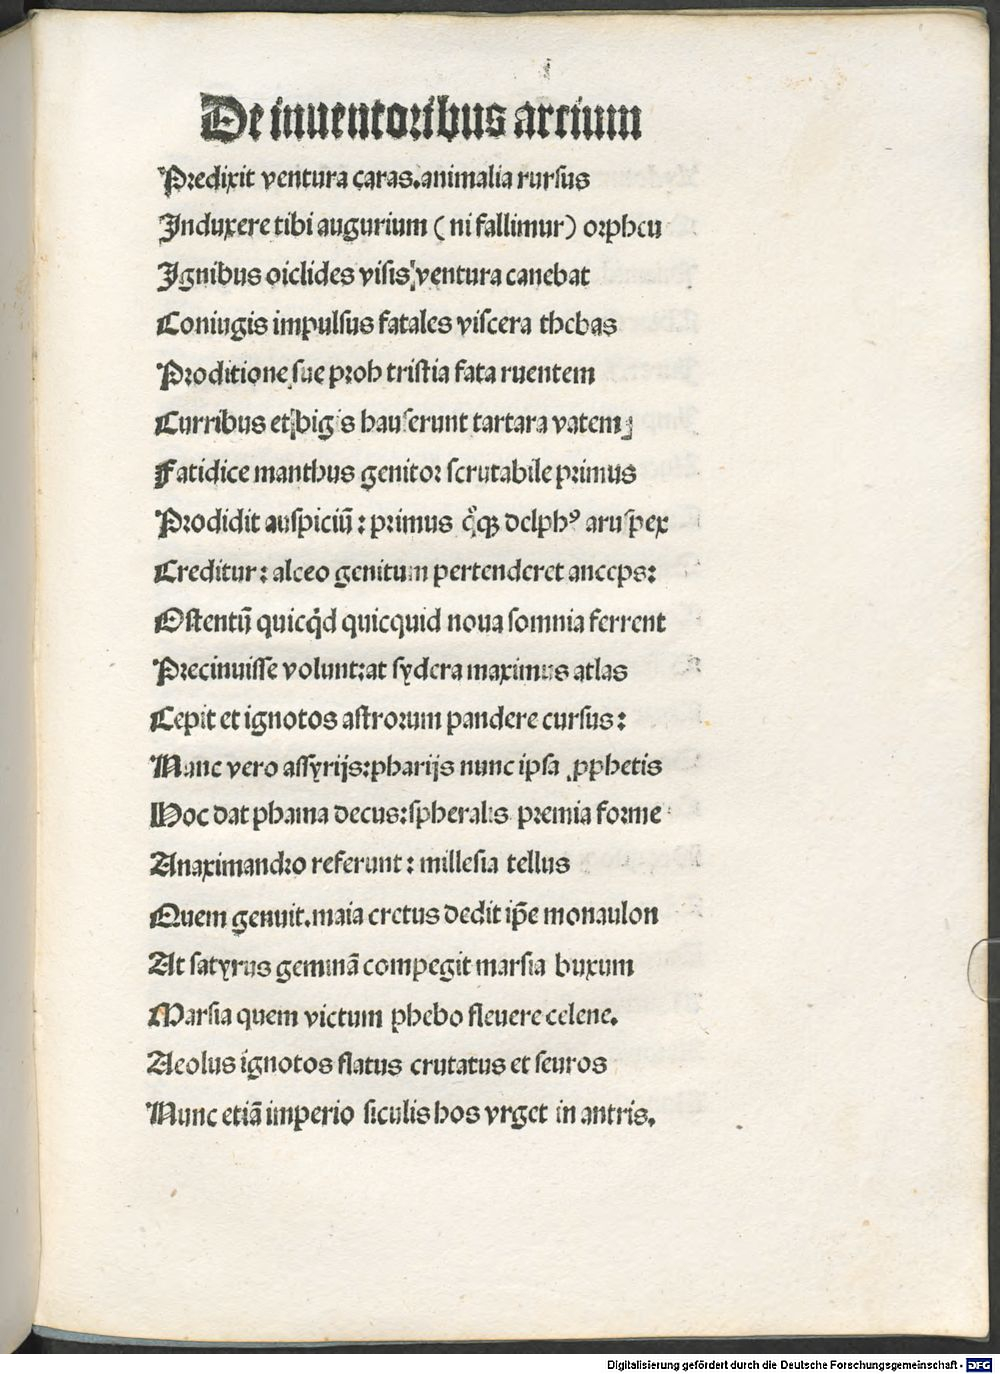 De inuentoribus artium
Predixit ventura caras.animalia rursus
Induxere tibi augurium ( ni fallimur) orpheu
Ignibus oiclides visis ventura canebat
Coniugis impulsus fatales viscera thebas
Proditione sue proh tristia fata ruentem
Curribus et bigis hauserunt tartara vatem
Fatidice manthus genitor scrutabile primus
Prodidit auspiciū : primus delphꝰ aruspex
Creditur : alceo genitum pertenderet anceps:
Ostentū quicq̇d quicquid noua somnia ferrent
Precinuisse volunt:at sydera maximus atlas
Cepit et ignotos astrorum pandere cursus :
Nunc vero assyrijs:pharijs nunc ipsa ꝓphetis
Hoc dat phama decus:spheralis premia forme
Anaximandro referunt : millesia tellus
Quem genuit.maia cretus dedit ip̄e monaulon
At satyrus geminā compegit marsia buxum
Marsia quem victum phebo fleuere celene.
Aeolus ignotos flatus crutatus et seuros
Nunc etiā imperio siculis hos vrget in antris.
Digitalisierung gefördert durch die Deutsche Forschungsgemeinschaft - DFG